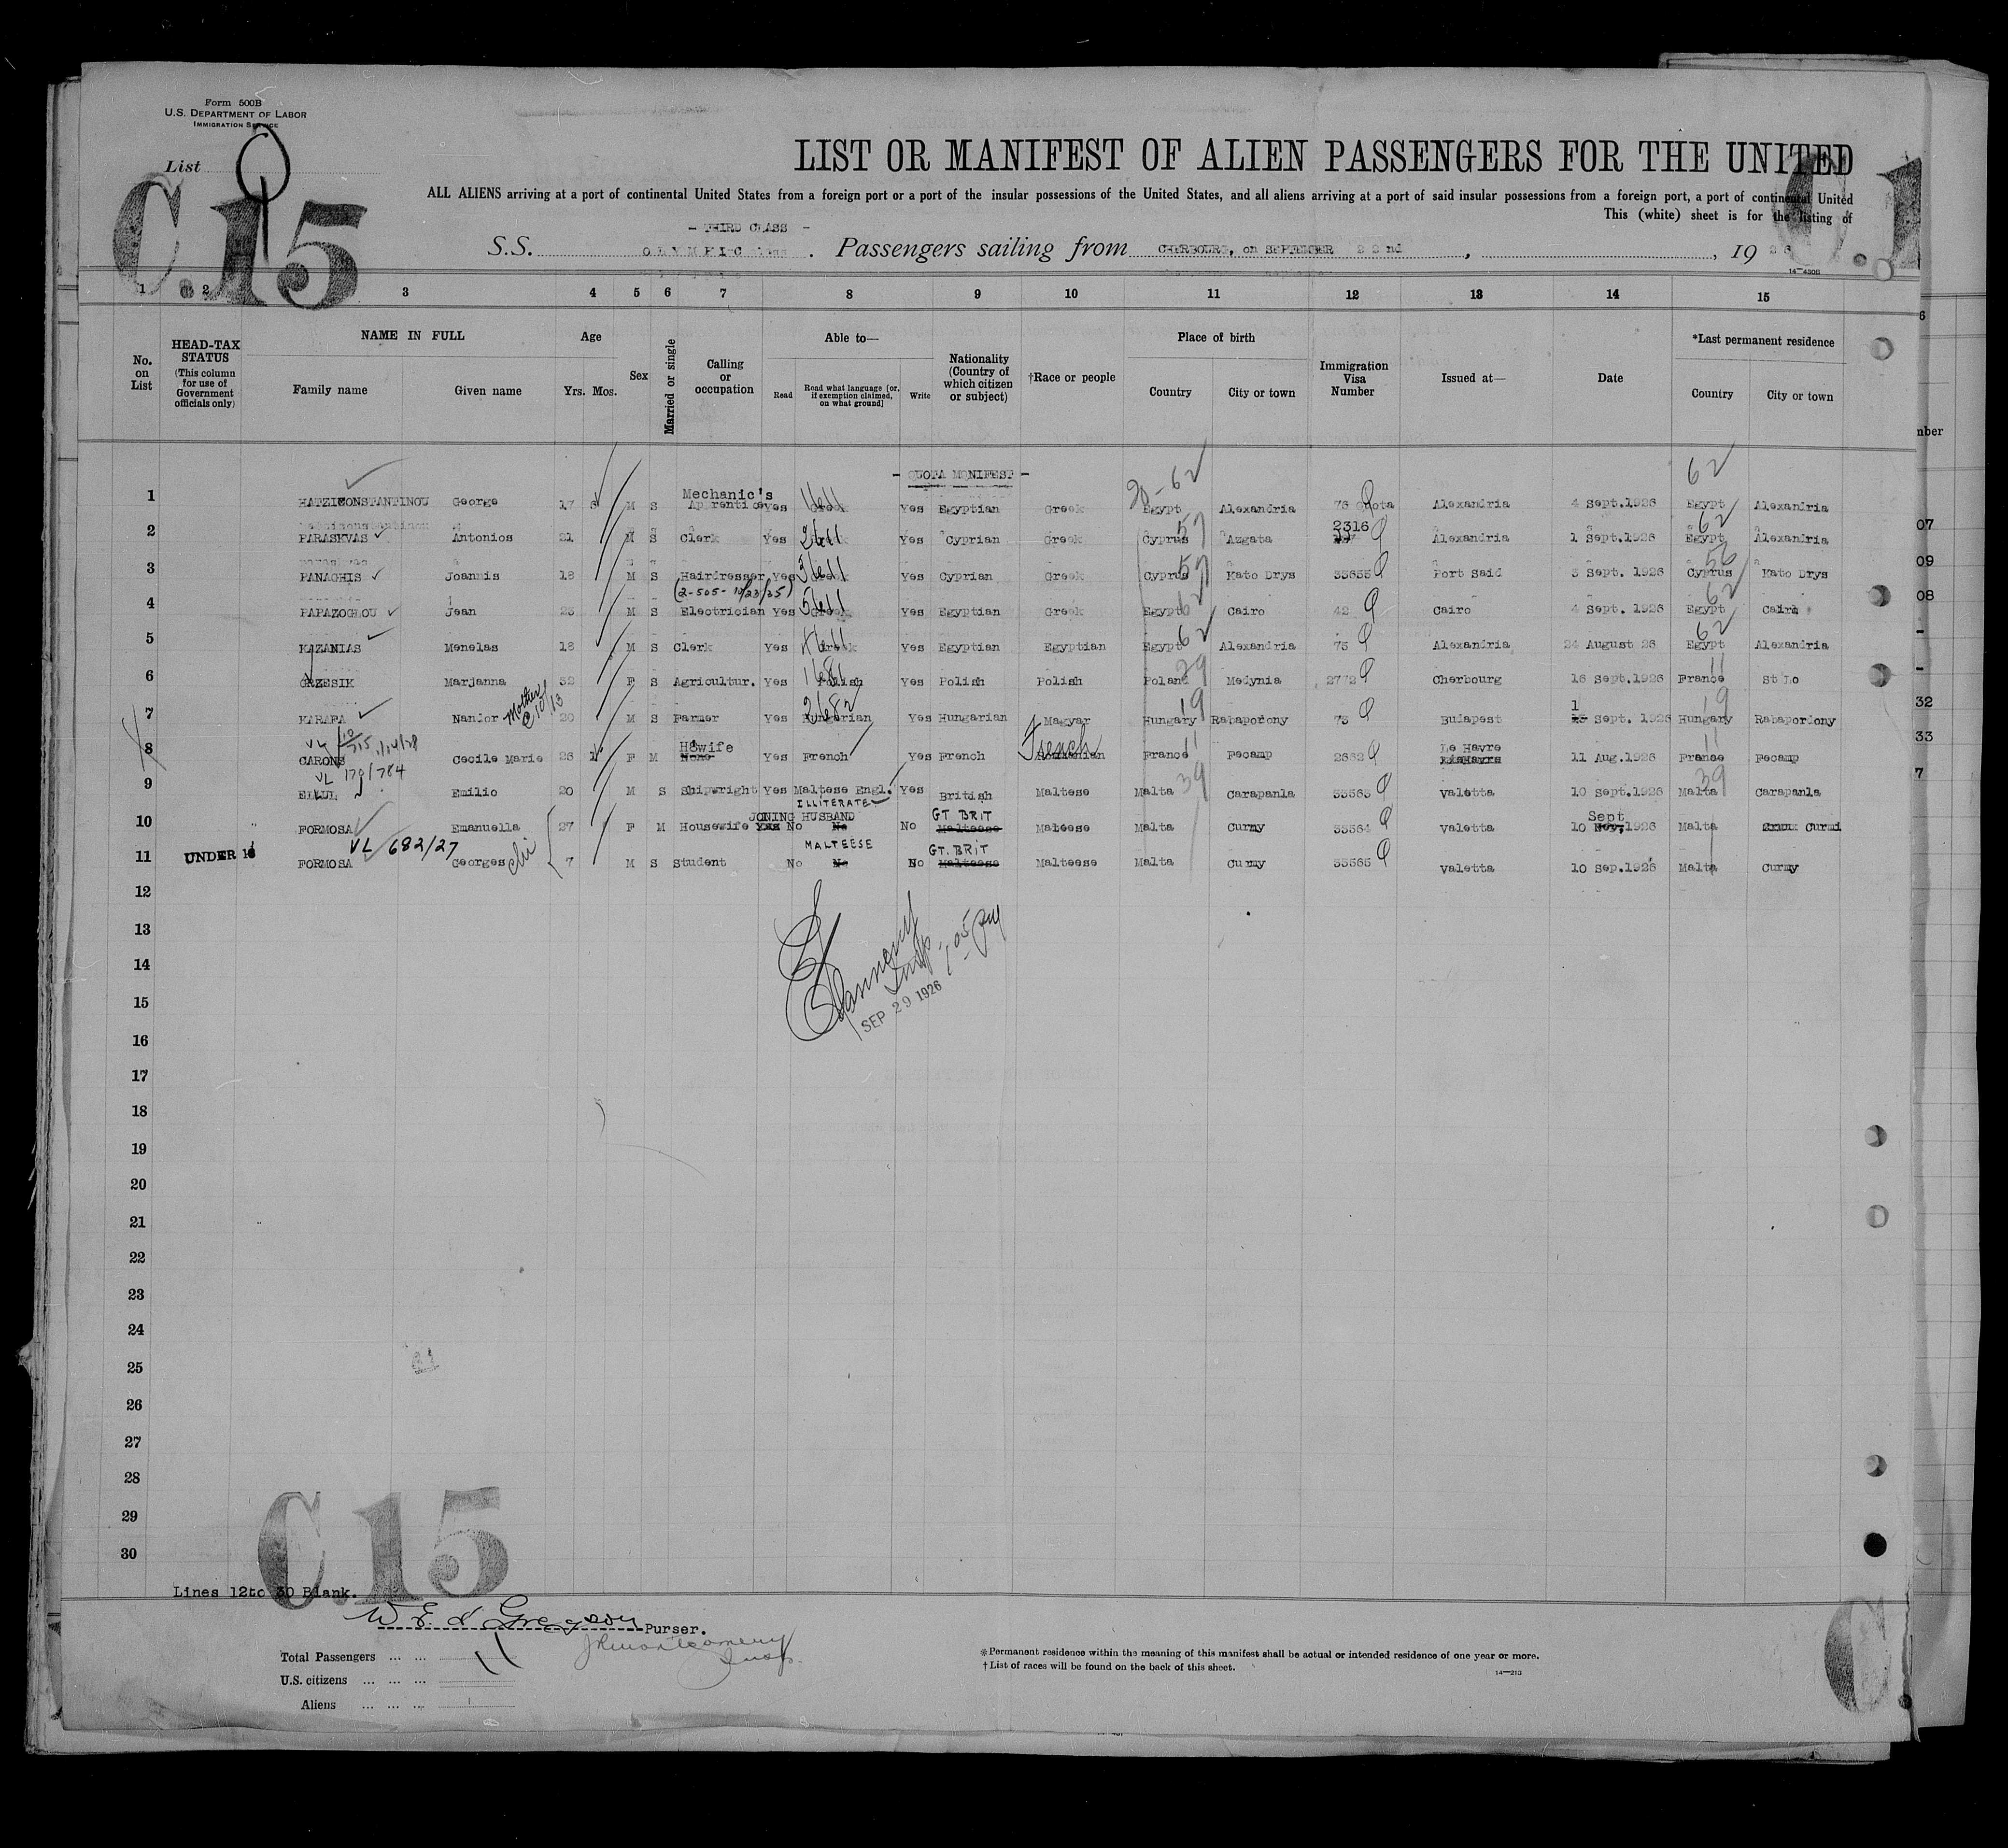 Form 500B
U.S. DEPARTMENT OF LABOR
IMMIGRATION SERVICE
List
C.15
LIST OR MANIFEST OF ALIEN PASSENGERS FOR THE UNITED
ALL ALIENS arriving at a port of continental United States from a foreign port or a port of the insular possessions of the United States, and all aliens arriving at a port of said insular possessions from a foreign port, a port of continental United
This (white) sheet is for the listing of
- THIRD CLASS -
S.S. OLYMPIC . Passengers sailing from CHERBOURG, on SEPTEMBER 22nd , , 19 26
14—430B
1 2 3 4 5 6 7 8 9 10 11 12 13 14 15
No. on List
HEAD-TAX STATUS (This column for use of Government officials only)
NAME IN FULL Family name Given name
Age Yrs. Mos.
Sex
Married or single
Calling or occupation
Able to— Read Read what language [or, if exemption claimed, on what ground] Write
Nationality (Country of which citizen or subject)
†Race or people
Place of birth Country City or town
Immigration Visa Number
Issued at—
Date
*Last permanent residence Country City or town
- QUOTA MONIFEST -
20-62 62
1 HATZICONSTANTINOU George 17 6 M S Mechanic's Aprentice Yes Greek Yes Egyptian Greek Egypt Alexandria 76 Qota Alexandria 4 Sept.1926 Egypt Alexandria
2 PARASKVAS Antonios 21 M S Clerk Yes Greek Yes Cyprian Greek Cyprus Azgata 2316 Alexandria 1 Sept.1926 Egypt Alexandria
3 PANAGHIS Joannis 18 M S Hairdresser Yes Greek Yes Cyprian Greek Cyprus Kato Drys 33655 Port Said 3 Sept. 1926 Cyprus Kato Drys
(2-505-10/23/35)
4 PAPAZOGLOU Jean 23 M S Electrician Yes Greek Yes Egyptian Greek Egypt Cairo 42 Cairo 4 Sept. 1926 Egypt Cairo
5 KAZANIAS Menelas 18 M S Clerk Yes Greek Yes Egyptian Egyptian Egypt Alexandria 75 Alexandria 24 August 26 Egypt Alexandria
6 GRZESIK Marjanna 32 F S Agricultur. Yes Polish Yes Polish Polish Poland Medynia 2772 Cherbourg 16 Sept.1926 France St Lo
Mother @ 10/13
7 Nandor 20 M S Farmer Yes Hungarian Yes Hungarian Magyar Hungary Rabapordony 73 Budapest 1 Sept. 1926 Hungary Rabapordony
8 CARONS Cecile Marie 26 F M H'wife None Yes French Yes French French Roumanian France Fecamp 2662 Le Havre 11 Aug.1926 France Fecamp
VL 179/784
9 ELLUL Emilio 20 M S Shipwright Yes Maltese Engl. Yes British Maltese Malta Carapanla 33563 Valetta 10 Sept.1926 Malta Carapanla
ILLITERATE
JONING HUSBAND GT BRIT Sept
10 FORMOSA Emanuella 27 F M Housewife Yes No No No Malteese Malteese Malta Curmy 33564 Valetta 10 Nov,1926 Malta Curmi
VL 682/27 MALTEESE GT.BRIT
11 UNDER 16 FORMOSA Georges chi 7 M S Student No No No Malteese Malteese Malta Curmy 33565 Valetta 10 Sep.1926 Malta Curmy
12
13
14
15
SEP 29 1926
Insp. 1 05 PM
16
17
18
19
20
21
22
23
24
25
26
27
28
29
30
C 15
Lines 12to 30 Blank.
Purser.
Total Passengers ... ... 11
U.S. citizens ... ... ...
Aliens ... ... ...
JRMontgomery Insp.
*Permanent residence within the meaning of this manifest shall be actual or intended residence of one year or more.
†List of races will be found on the back of this sheet.
14—213